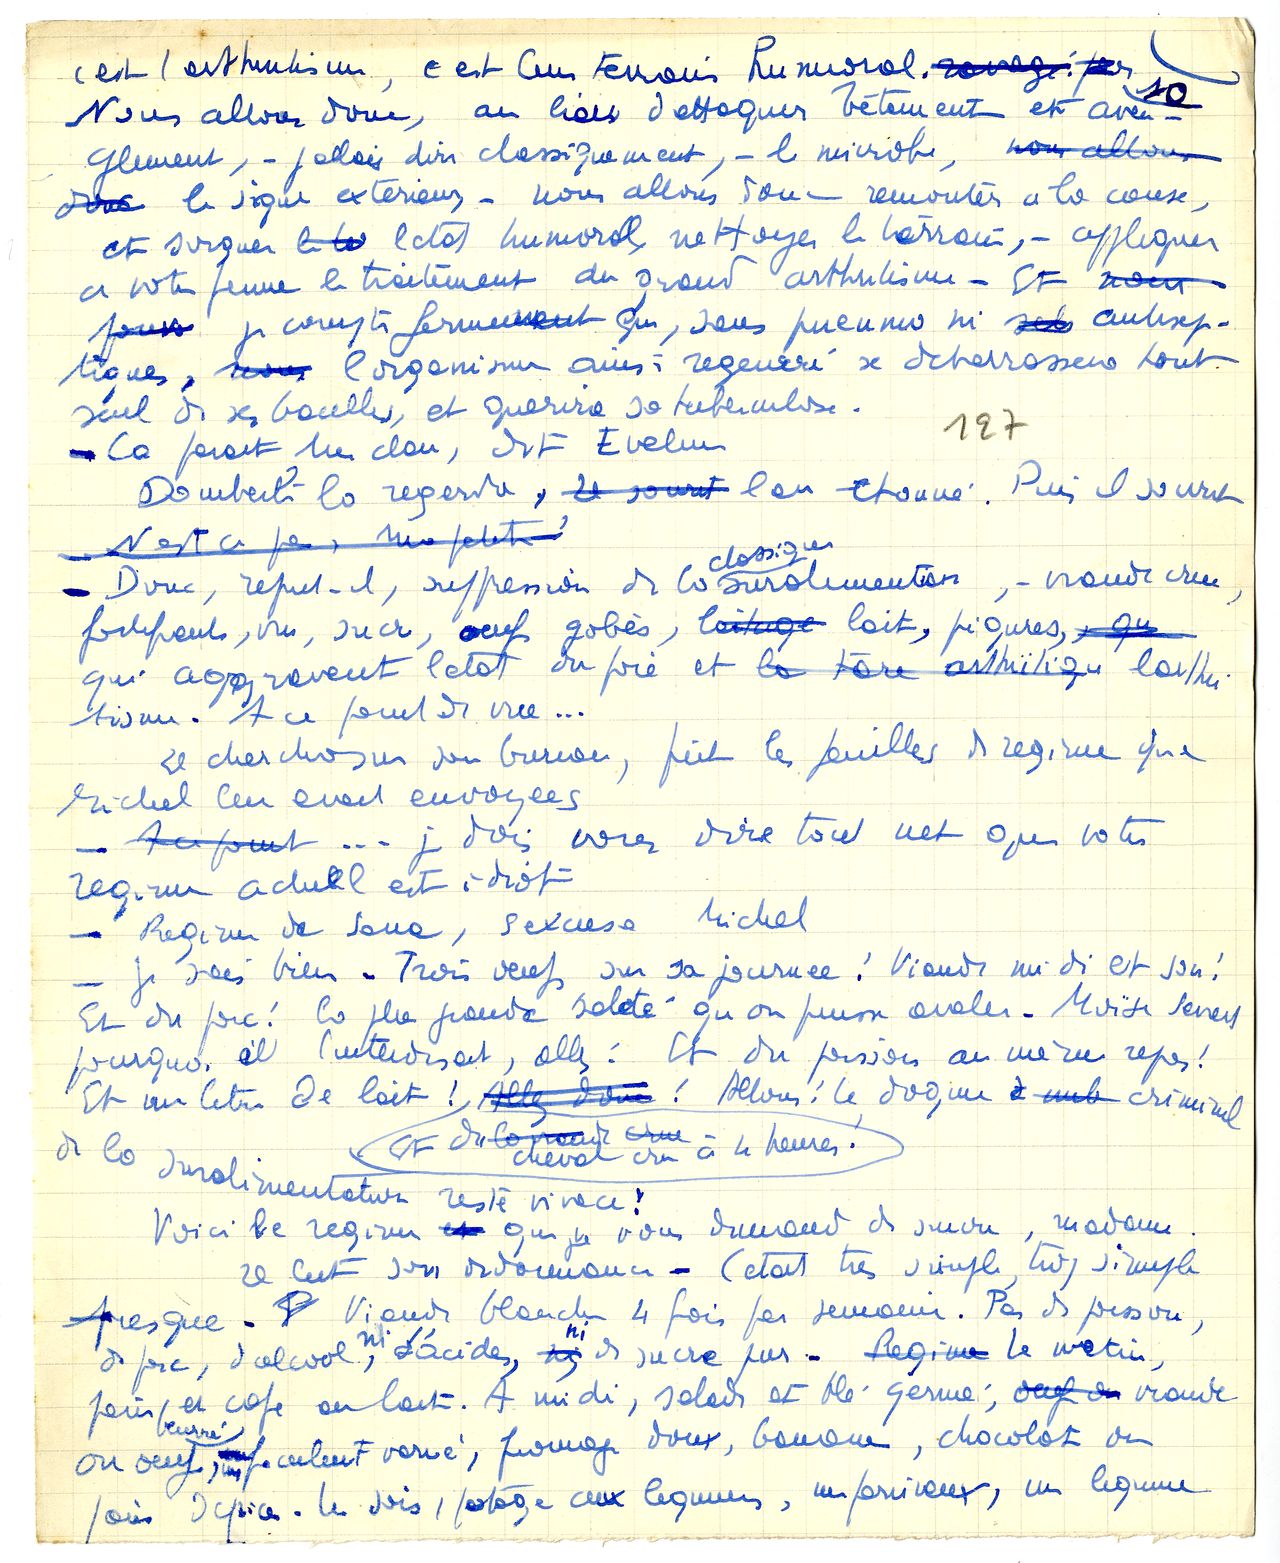 c'est l'arthritisme, c'est leur terrain humoral. ravagé par
10
Nous allons donc, au lieu d'attaquer bêtement et aveu-
glement, - j'allais dire classiquement, - le microbe, nous allons
donc le signe extérieur, - nous allons donc remonter à la cause,
et soigner le la l'état humoral, nettoyer le terrain, - appliquer
à votre femme le traitement du grand arthritisme - Et nous
je compte fermement que, sans pneumo ni antisep-
tiques, nous l'organisme ainsi régénéré se débarrassera tout
seul de ses bacilles, et guérira sa tuberculose.
- Ca parait très clair, dit Evelyne
127
Doutreval la regarda, il sourit l'air étonné. Puis il sourit
- N'est ce pas, ma petite
- Donc, reprit-il, suppression de la classique suralimentation, - viande crue,
fortifiants, vin, sucre, oeufs gobés, laitage lait, piqûres, qu
qui aggravent l'état du foie et la tare arthritique l'arthri
tisme. A ce point de vue...
Il chercha sur son bureau, prit les feuilles de régime que
Michel leur avait envoyées
- A ce point ... je dois vous dire tout net que votre
régime actuel est idiot
- Régime de sana, s'excusa Michel
- Je sais bien - Trois oeufs sur sa journée! Viande midi et soir!
Et du porc! la plus grande saleté qu'on puisse avaler - Moïse savait
pourquoi il l'interdisait, allez! Et du poisson au même repas!
Et un litre de lait! Allez donc! Allons! le dogme criminel
Et du la viande crue cheval cru à 4 heures!
de la suralimentation reste vivace!
Voici le régime et que je vous demande de suivre, madame.
Il lut son ordonnance - C'était très simple, très simple
presque - Viande blanche 4 fois par semaine. Pas de poisson,
de porc, d'alcool, ni d'acides, ni de sucre pur - Régime Le matin,
pain beurré et café au lait. A midi, salade et blé germé, oeuf ou viande
ou oeuf, un féculent varié, fromage doux, banane, chocolat ou
pain d'épice. Le soir, potage aux légumes, un farineux, un légume